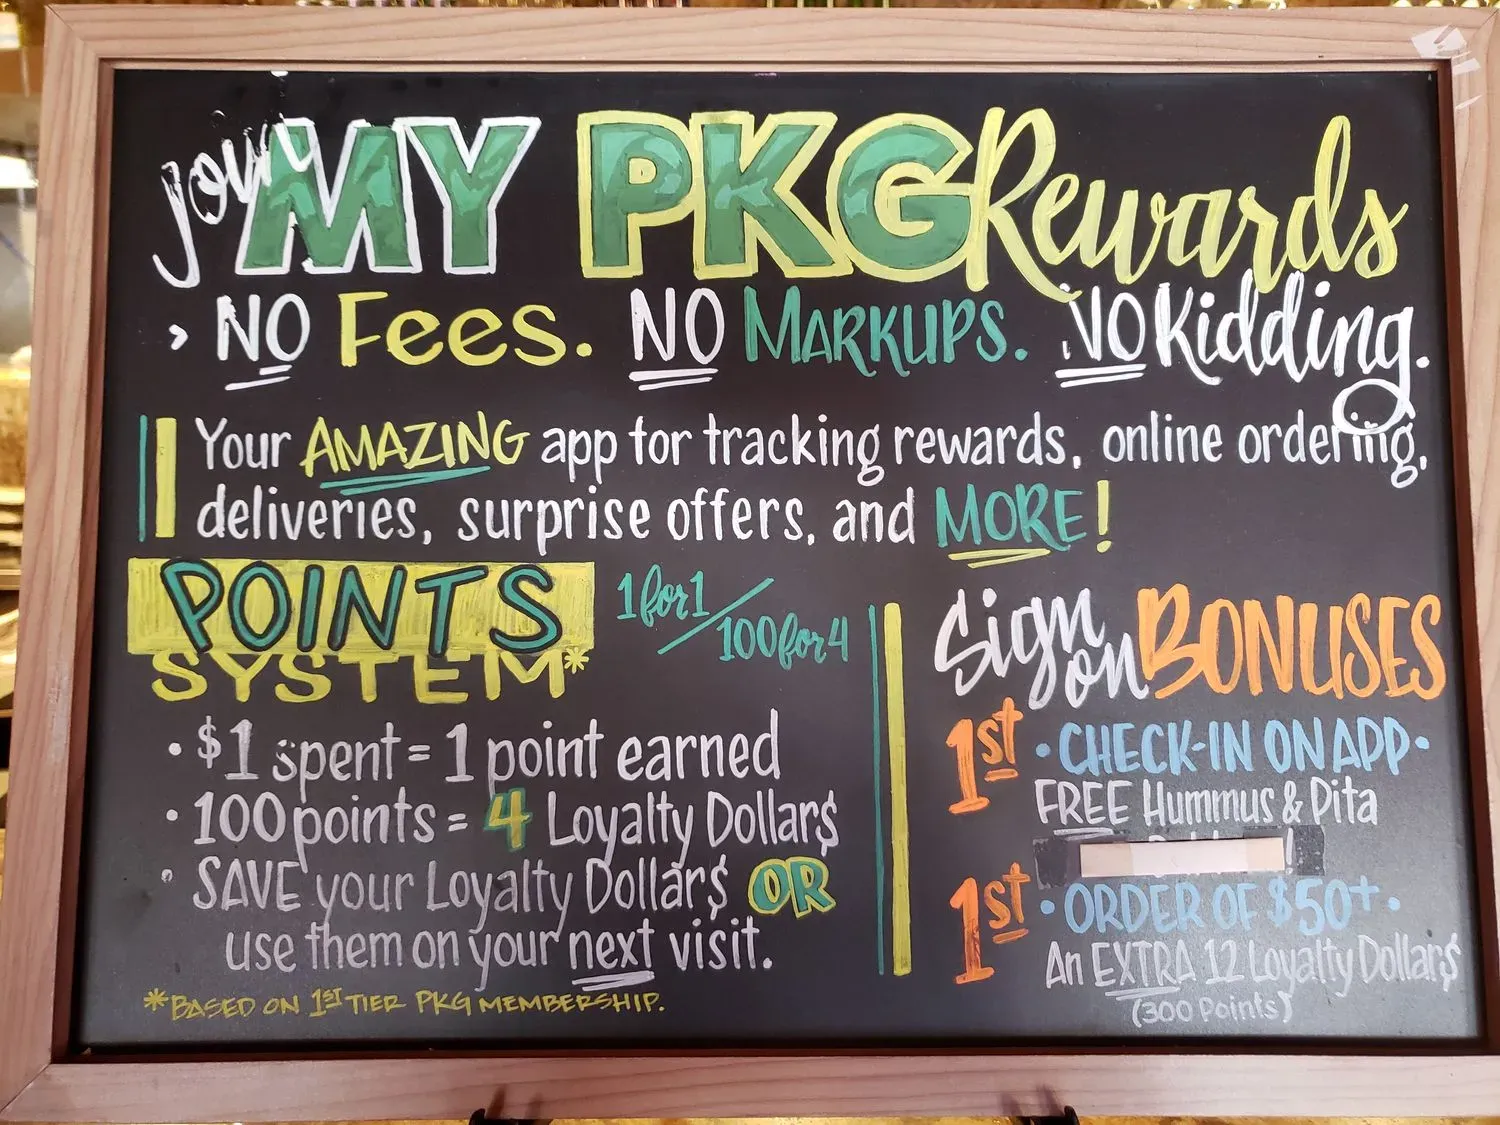 Join MY PKG Rewards
> NO Fees. NO MARKUPS. NO Kidding.
Your AMAZING app for tracking rewards, online ordering,
deliveries, surprise offers, and MORE!
POINTS
SYSTEM*
1 for 1 / 100 for 4
• $1 spent = 1 point earned
• 100 points = 4 Loyalty Dollar$
• SAVE your Loyalty Dollar$ OR
use them on your next visit.
*BASED ON 1ST TIER PKG MEMBERSHIP.
Sign on BONUSES
1st • CHECK-IN ON APP •
FREE Hummus & Pita
1st • ORDER OF $50+ •
An EXTRA 12 Loyalty Dollar$
(300 Points)